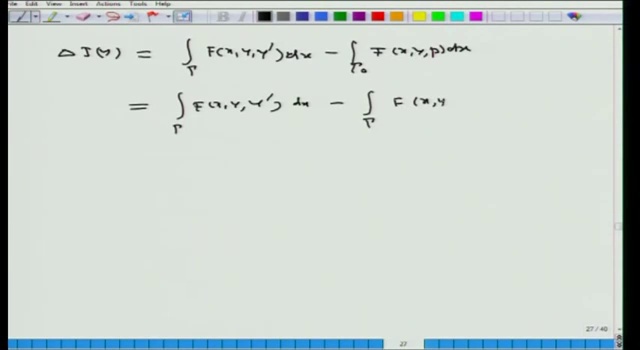 Edit View Insert Actions Tools Help
Δ J(Y) = ∫_Γ F(x, Y, Y') dx − ∫_Γ₀ F(x, Y, p) dx
= ∫_Γ F(x, Y, Y') dx − ∫_Γ F(x, Y
27 / 40
27